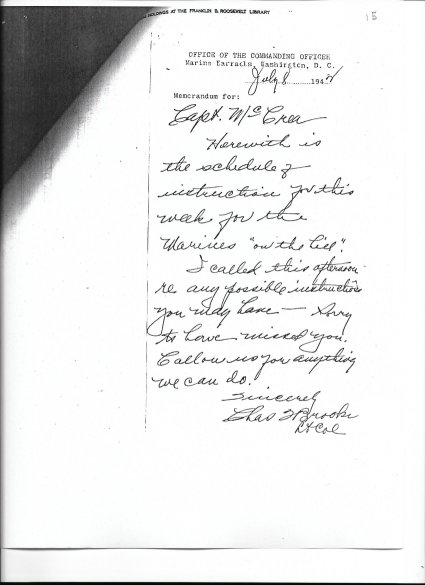 HOLDINGS AT THE FRANKLIN D. ROOSEVELT LIBRARY
15
OFFICE OF THE COMMANDING OFFICER
Marine Barracks, Washington, D. C.
July 8 194
Memorandum for:
Capt. McCrea
Herewith is
the schedule of
instruction for this
week for the
Marines "on the hill".
I called this afternoon
re any possible instructions
you may have — Sorry
to have missed you.
Call on us for anything
we can do.
Sincerely
Chas Brooks
Lt Col